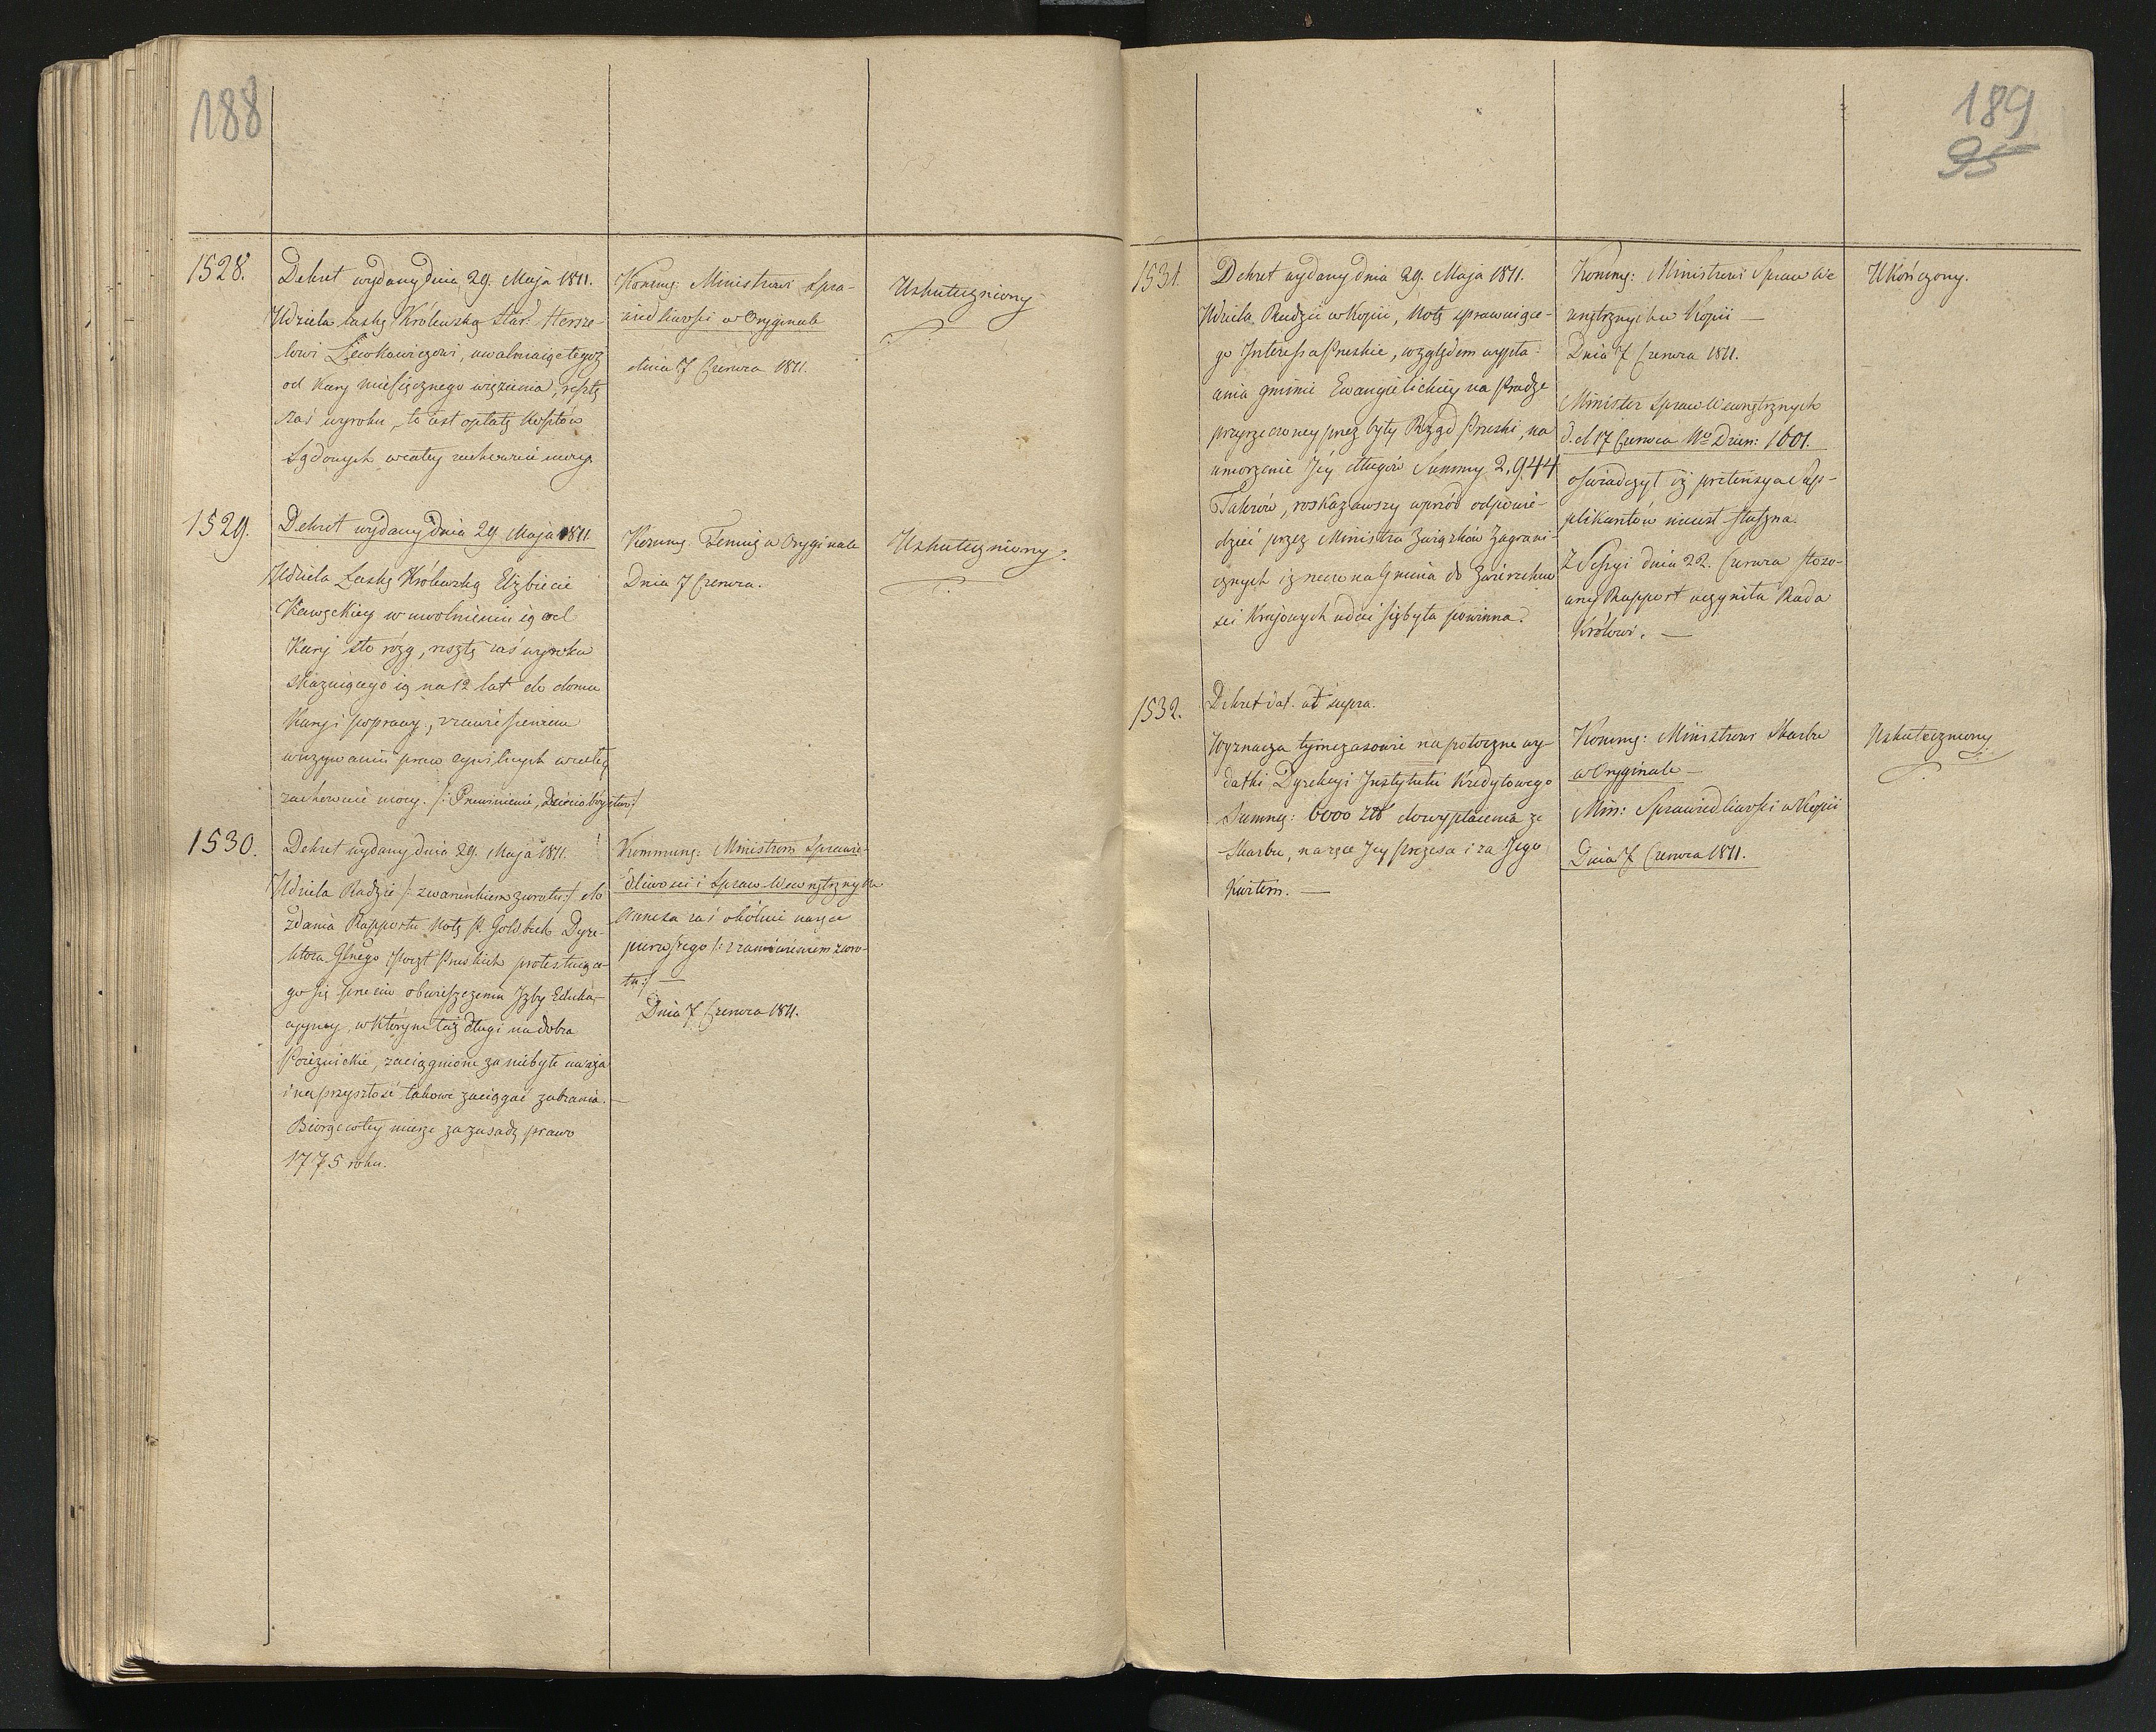 188
1528.
Dekret wydany dnia 29. Maja 1811.
Udziela Łaskę Królewską Star: Hersze-
lowi Lewkowiczowi, uwalniaiąc tegoż
od kary miesięcznego więzienia, resztę
zaś wyroku, to iest opłatę kosztów
Sądowych wcałey zachowuie mocy.
Kommg: Ministrowi Spra-
wiedliwości w Oryginale
dnia 7 Czerwca 1811.
Uskuteczniony.
1529.
Dekret wydany dnia 29 Maja 1811.
Udziela Łaskę Królewską Elżbiecie
Kawęckiey w uwolnieniu ią od
Kary sto rózg, resztę zaś wyroku
skazuiącego ią na 12 lat do domu
Kary i poprawy, z zawieszeniem
wużywaniu praw cywilnych wcałey
zachowuie mocy. /: Przewinienie, Dzieciobóystwo:/
Kommg: Temuż w Oryginale
Dnia 7 Czerwca.
Uskuteczniony.
1530.
Dekret wydany dnia 29. Maja 1811.
Udziela Radzie /: z warunkiem zwrotu:/ do
zdania Rapportu Notę P. Goldbek Dyre-
ktora Glnego Poczt Pruskich protestuiące-
go się przeciw obwieszczeniu Izby Eduka-
cyyney, w którym taż długi na dobra
Poiezuickie, zaciągnione za niebyłe uważa
i na przyszłość takowe zaciągać zabrania. —
Biorąc w tey mierze za zasadę prawo
1775 roku.
Kommung: Ministrom Sprawie-
dliwości i Spraw Wewnętrznych
Annexa zaś obóm na ręce
pierwszego /: z zamówieniem zwro-
tu:/ —
Dnia 7 Czerwca 1811.
189
95
1531.
Dekret wydany dnia 29. Maja 1811.
Udziela Radzie w Kopii, Notę sprawuiące-
go Interessa Pruskie, względem wypła-
cenia gminie Ewangielickiey na Pradze
przyrzeczoney przez były Rząd Pruski, na
umorzenie Jey długów Summy 2,944
Talarów, roskazawszy wprzód odpowie-
dzieć przez Ministra Związków Zagrani-
cznych iż rzeczona Gmina do Zwierzchno
ści Kraiowych udać się była powinna.
Kommg: Ministrowi Spraw We
wnętrznych w Kopii —
Dnia 7 Czerwca 1811.
Minister Spraw Wewnętrznych
d. d 17 Czerwca No Dzien: 1601.
oświadczył iż pretensya Sup-
plikantów nieiest słuszna.
Z Sessyi dnia 22. Czerwca stoso-
wny Rapport uczyniła Rada
Królowi. —
Ukończony.
1532.
Dekret dat. ut supra.
Wyznacza tymczasowie na potoczne wy-
datki Dyrekcyi Instytutu Kredytowego
Summę: 6000 Złł do wypłacenia ze
Skarbu, na ręce Jey Prezesa i za Jego
Kwitem. —
Kommg: Ministrowi Skarbu
w Oryginale —
Min: Sprawiedliwości w Kopii
Dnia 7 Czerwca 1811.
Uskuteczniony